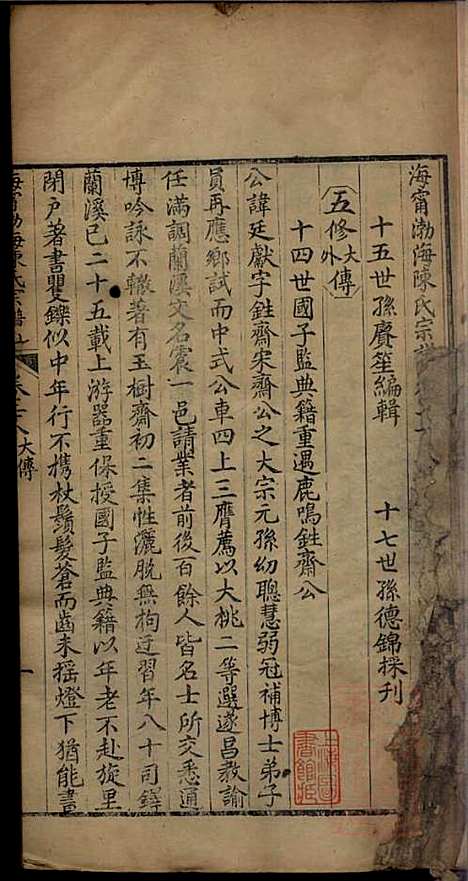 海甯渤海陳氏宗譜
十五世孫賡笙編輯 十七世孫德錦採刊
五修大傳
外
十四世國子監典籍重遇鹿鳴鉎齋公
公諱廷獻字鉎齋宋齋公之大宗元孫幼聰慧弱冠補博士弟子
員再應鄉試而中式公車四上三膺薦以大桃二等選遂昌教諭
任滿調蘭溪文名震一邑請業者前後百餘人皆名士所交悉通
博吟詠不輟著有玉樹齋初二集性灑脫無拘迂習年八十司鐸
蘭溪已二十五載上游器重保授國子監典籍以年老不赴旋里
閉戶著書矍鑠似中年行不攜杖鬚髮蒼而齒未搖燈下猶能畫
海甯渤海陳氏宗譜 大傳 一
上海圖書館藏